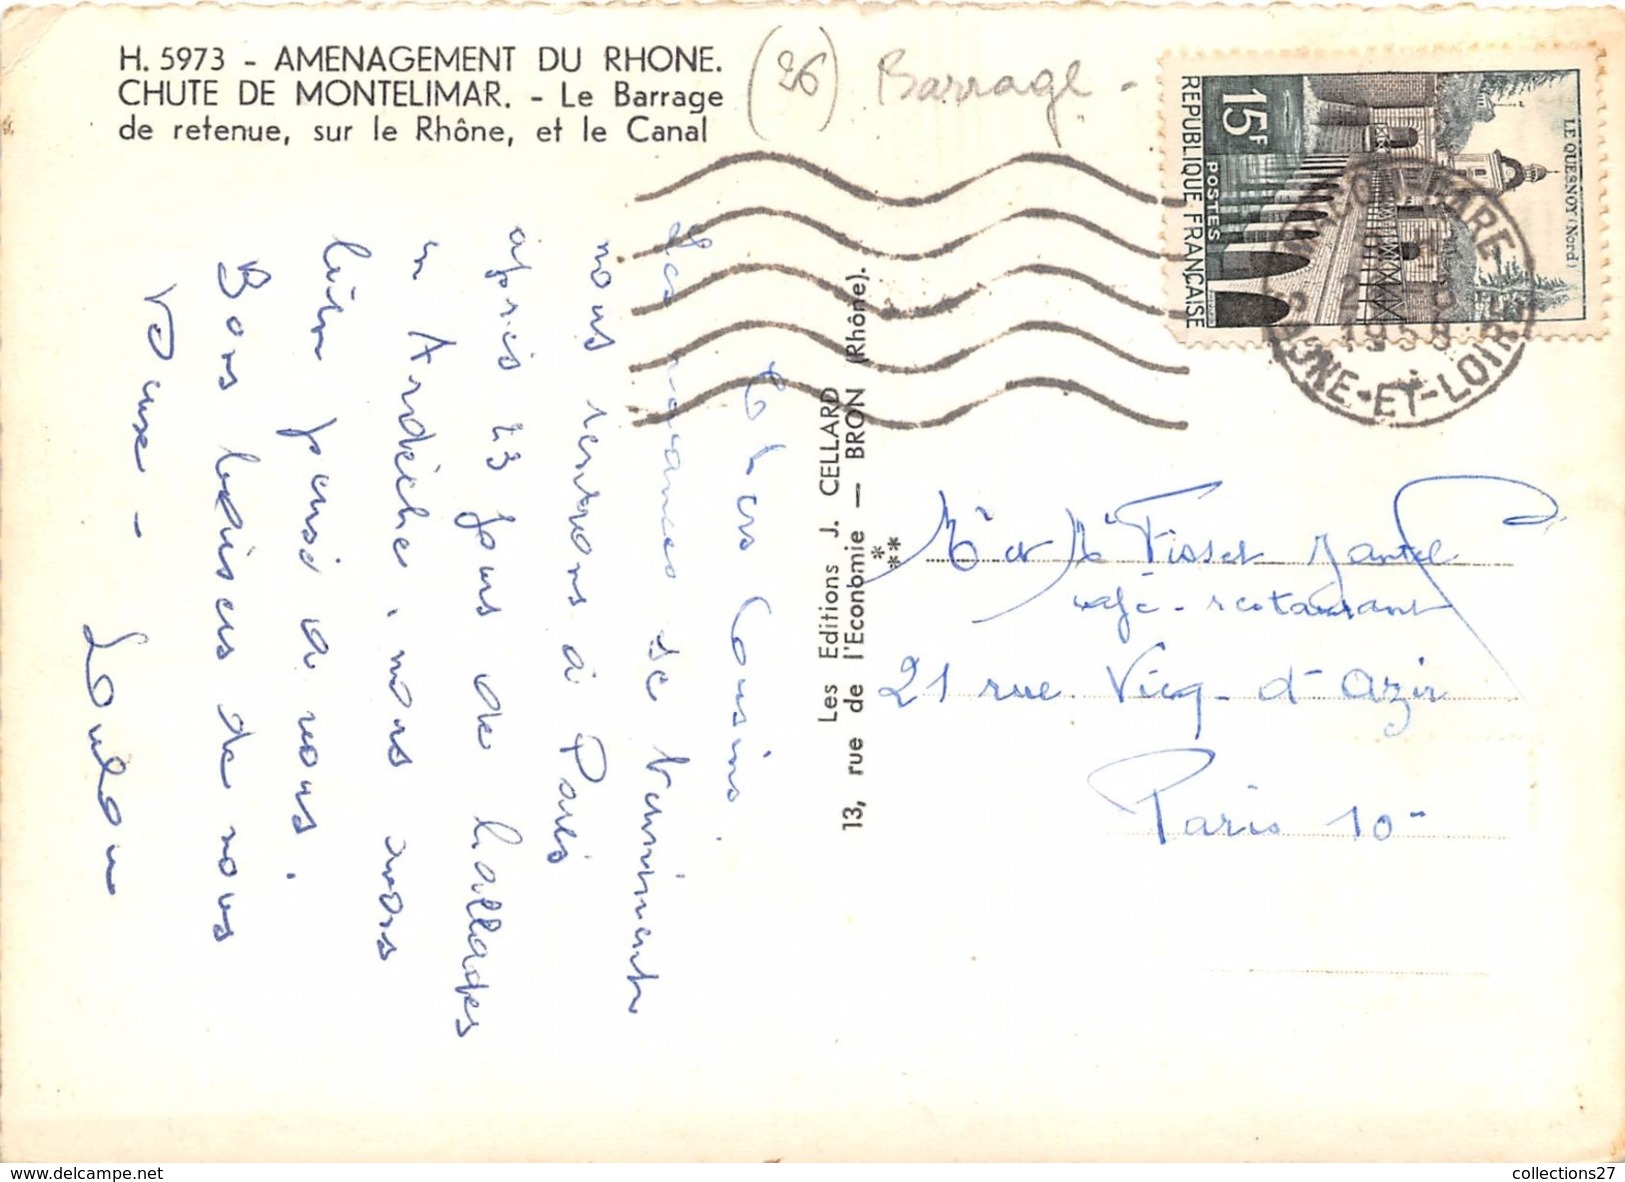 H. 5973 - AMENAGEMENT DU RHONE.
CHUTE DE MONTELIMAR. - Le Barrage
de retenue, sur le Rhône, et le Canal
(26) Barrage -
15F
POSTES
REPUBLIQUE FRANÇAISE
LE QUESNOY (Nord)
GARE
1958
SAONE-ET-LOIRE
Chers Cousins.
Les vacances se terminent
nous rentrons à Paris
après 23 jours de
en Ardèche, nous avons
bien pensé à vous.
Bons baisers de nous
Les Editions J. CELLARD
13, rue de l'Economie — BRON (Rhône).
Mr et Me Fisset
café-restaurant
21 rue Vicq-d'Azir
Paris 10
collections27